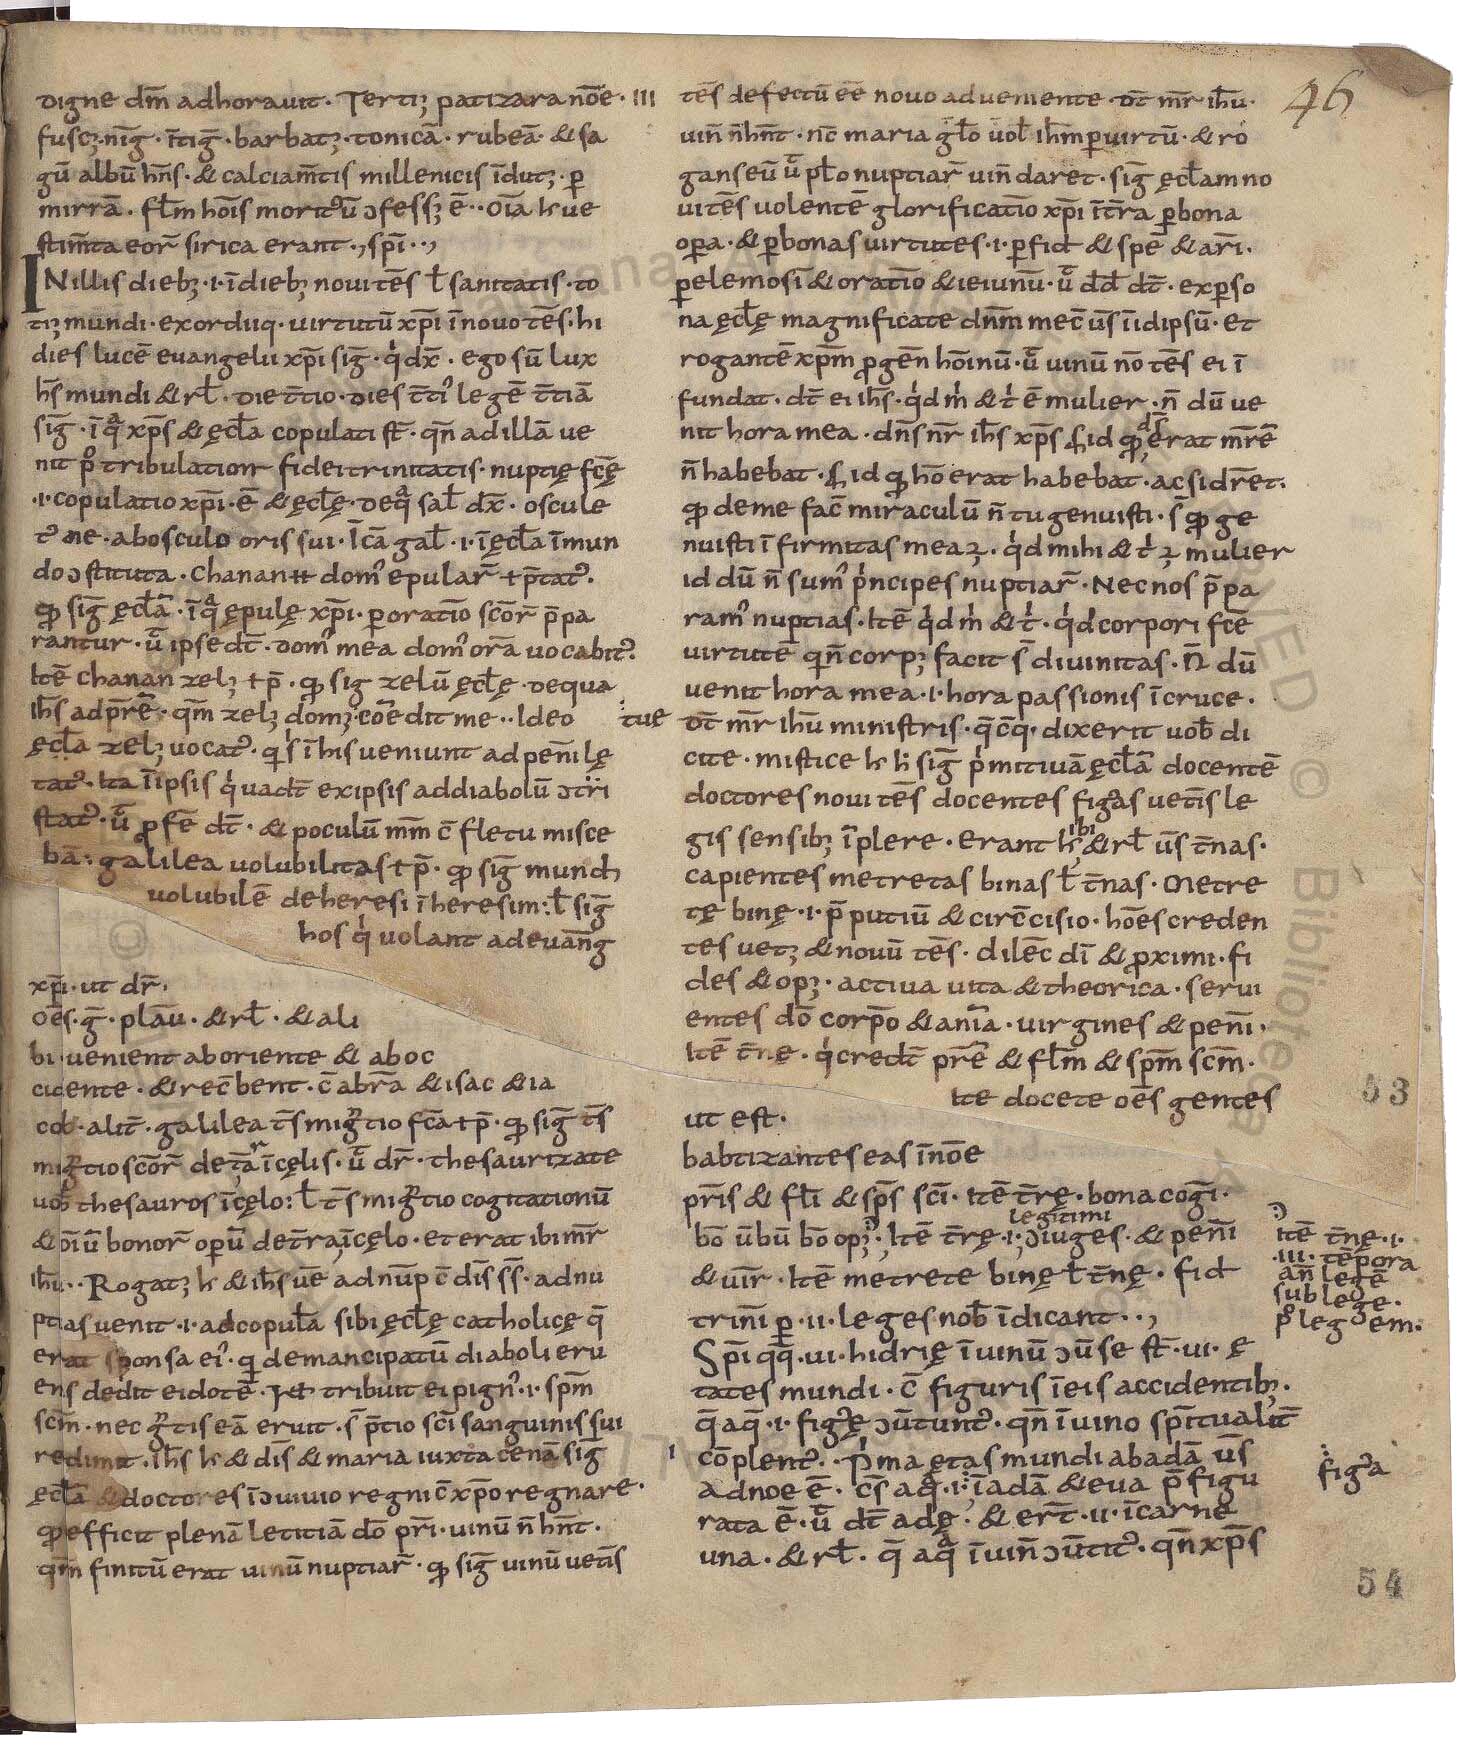 digne dm̄ adhorauit · Tertiꝫ patizara nōe · III
fuscꝫ · nīg · ītig̅ · barbatꝫ · tonicā · rubeā · & sa
gū albū hn̄s · & calciam̄tis millenicis īdutꝫ · p̱
mirrā · fl̄m hōis moritꝰū ɔfessꝫ ē ·· oīa ꞕ ue
stim̄ta eor̄ sirica erant ·, sp̄i ··,
INillis diebꝫ · i · ī diebꝫ noui tēs ł sanitatis · to
tiꝫ mundi · exordiiq · uirtutū xp̄i ī nouo tēs · hi
dies lucē euangelii xp̄i sig̅ · q̇ dx̄ · ego sū lux
h̄s mundi & rł · die t̄tio · dies t̄tꝰ legē t̄tiā
sig̅ · ī qͣ xp̄s & ęcła copulati st̄ · qn̄ ad illā ue
nit pꝰ tribulationē fidei trinitatis · nuptię fcę̄
· i · copulatio xp̄i · ē & ęcłę · de qͣ sał dx̄ · oscule
tꝰ me · ab osculo oris sui · Īcā gał · i · ī ęcła ī mun
do ɔstituta · Chanan ⁊ domꝰ epular̄ īt̄p̄tatꝰ ·
ꝙ sig̅ ęcłā · ī qͣ ępulę xp̄i · p̱ oratiō scōr̄ p̄pa
rantur · uͭ̄ ipse dt̄ · domꝰ mea domꝰ orā uocabitꝰ ·
Itē Chanan zelꝫ īt̄p̄ · ꝙ sig zelū ęcłę · de qua
ih̄s ad pr̄ē · qm̄ zelꝫ domꝫ · cōedit me ·· Ideo tue
ęcła zelꝫ uocatꝰ · qṡ ī his ueniunt ad pen̄i lę
tatꝰ · Ita ī ipsis q̇ uadt̄ ex ipsis ad diabolū ɔtri
statꝰ · uͭ̄ ꝓfē dt̄ · & poculū mm̄ c̄ fletu misce
bā : galilea uolubilitas īt̄p̄ · ꝙ sig̅ mundū
uolubilē de heresi ī heresim : ł sig̅
hos q̇ uolant ad euāng
xp̄i · ut dr̄ ·
oēs · ḡ · plāu · & rł · & ali
bi · uenient ab oriente & ab oc
cidente · & rec̄bent · c̄ abrā & isac & ia
cob · alit̄ · galilea t̄s mig̊tio fcā īt̄p̄ · ꝙ sig̅ t̄s
mig̊tio scōr̄ de t̄ra ī cęlis · uͭ̄ dr̄ · thesaurizate
uob̄ thesauros ī cęlo : ł t̄s mig̊tio cogitationū
& oīū bonor̄ opū de t̄ra ī cęlo · et erat ibi mr̄
ih̄u · · Rogatꝫ ꞕ & ih̄s uē ad nūp c̄ dīs ss̄ · ad nu
ptias uenit · i · ad copułā sibi ęcłę catholicę q̄
erat sponsa eiꝰ · qi de mancipatū diaboli eru
ens dedit ei dotē · Itē tribuit ei pignꝰ · i · sp̄m
scm̄ · nec g̊tis eā eruit · s̄ p̄tio scī sanguinis sui
redimit · Ih̄s ꞕ & dīs & maria iuxta cenā sig̅
ęcłā & doctores ī ɔuiuio regni c̄ xp̄o regnare ·
ꝙ efficit plenā letitiā dō pr̄i · uinū n̄ hn̄t ·
qm̄ finitū erat uinū nuptiar̄ · ꝙ sig̅ uinū uet̄is
46
tēs defectū eē nouo adueniente · Dt̄ mr̄ ih̄u ·
uin̄ n̄ hn̄t · nc̄ maria gło uoł ih̄m per uirtū · & ro
gans eū uͭ̄ pło nuptiar̄ uin̄ daret · sig̅ ęcłam no
ui tēs uolentē glorificatiō xp̄i ī t̄ra p̱ bona
op̱a · & p̱ bonas uirtutes · i · p̱ fid & spē & ar̄i ·
p̱ elemosī & oratiō & ieiunū · uͭ̄ dd̄ dt̄ · ex p̱so
na ęcłę magnificate dnm̄ mec̄ ūs ī idipsū · et
rogantē xp̄m ꝓgēn hōinū · uͭ̄ uinū nō tēs ei ī
fundat · dt̄ ei ih̄s · q̇d ṁ & ṫ ē mulier · n̄ dū ue
nit hora mea · dn̄s nr̄ ih̄s xp̄s s̄ id ꝙ ds̄ erat mr̄ē
n̄ habebat · s̄ id ꝙ hō erat habebat · ac si dr̄et ·
ꝙ de me fac̄ miraculū n̄ tu genuisti · s̄ ꝙ ge
nuisti īfirmitas mea ē · q̇d mihi & ṫ ē mulier
id dū n̄ sumꝰ ṗncipes nuptiar̄ · Nec nos p̄pa
ramꝰ nuptias · Itē q̇d ṁ & ṫ · q̇d corpori fcē
uirtutē qn̄ corpꝫ facit s̄ diuinitas · N̄ dū
uenit hora mea · i · hora passionis ī cruce ·
Dt̄ mr̄ ih̄u ministris · q̄cq̄ · dixerit uob̄ di
cite · mistice ꞕ ꞕ sig̅ ṗmitiuā ęcłā docentē
doctores noui tēs docentes figͣas uet̄is le
gis sensibꝫ īplere · erant ꞕ ibi & rł ūs t̄nas ·
capientes metretas binas ł t̄nas · Metre
tę binę · i · p̄putiū & circ̄cisio · hōes creden
tes uetꝫ & nouū tēs · dilec̄ dī & ꝓximi · fi
des & opꝫ · actiua uita & theorica · serui
entes dō corp̄o & anīa · uirgines & pen̄i ·
Itē t̄nę · q̇ credt̄ pr̄ē & fl̄m & sp̄m scm̄ ·
ut est · Ite docete oēs gentes
babtizantes eas ī nōe
pr̄is & fłi & sp̄s scī · Itē t̄rę · bona cogī ·
bō ūbū bō opꝫ · Itē t̄rę · i · legitimi ɔiuges · & pen̄i
& uir̄ · Itē metrete binę ł t̄nę · fid
trin̄i p̱ · ii · leges nob̄ īdicant ··,
Sp̄i qq̄ · ui · hidrię ī uinū ɔūse st̄ · ui · ę
tates mundi · c̄ figuris ī eis accidentibꝫ ·
q̄ aq̄ · i · figͣę ɔūtuntꝰ · qn̄ ī uino sp̄itualit̄
cōplentꝰ · · Ṗma ętas mundi ab adā ūs
ad noe ē · cꝰs aqͣ · i · ī adā & eua p̄figu
rata ē · uͭ̄ dt̄ adę · & ert̄ · ii · ī carne
una · & rł · q̄ aqͣ ī uin̄ ɔūtitꝰ · qn̄ xp̄s
Itē t̄nę · i ·
· iii · tēpora
an̄ legē
sub lege ·
pꝰ legem ·
figͣa
53
54